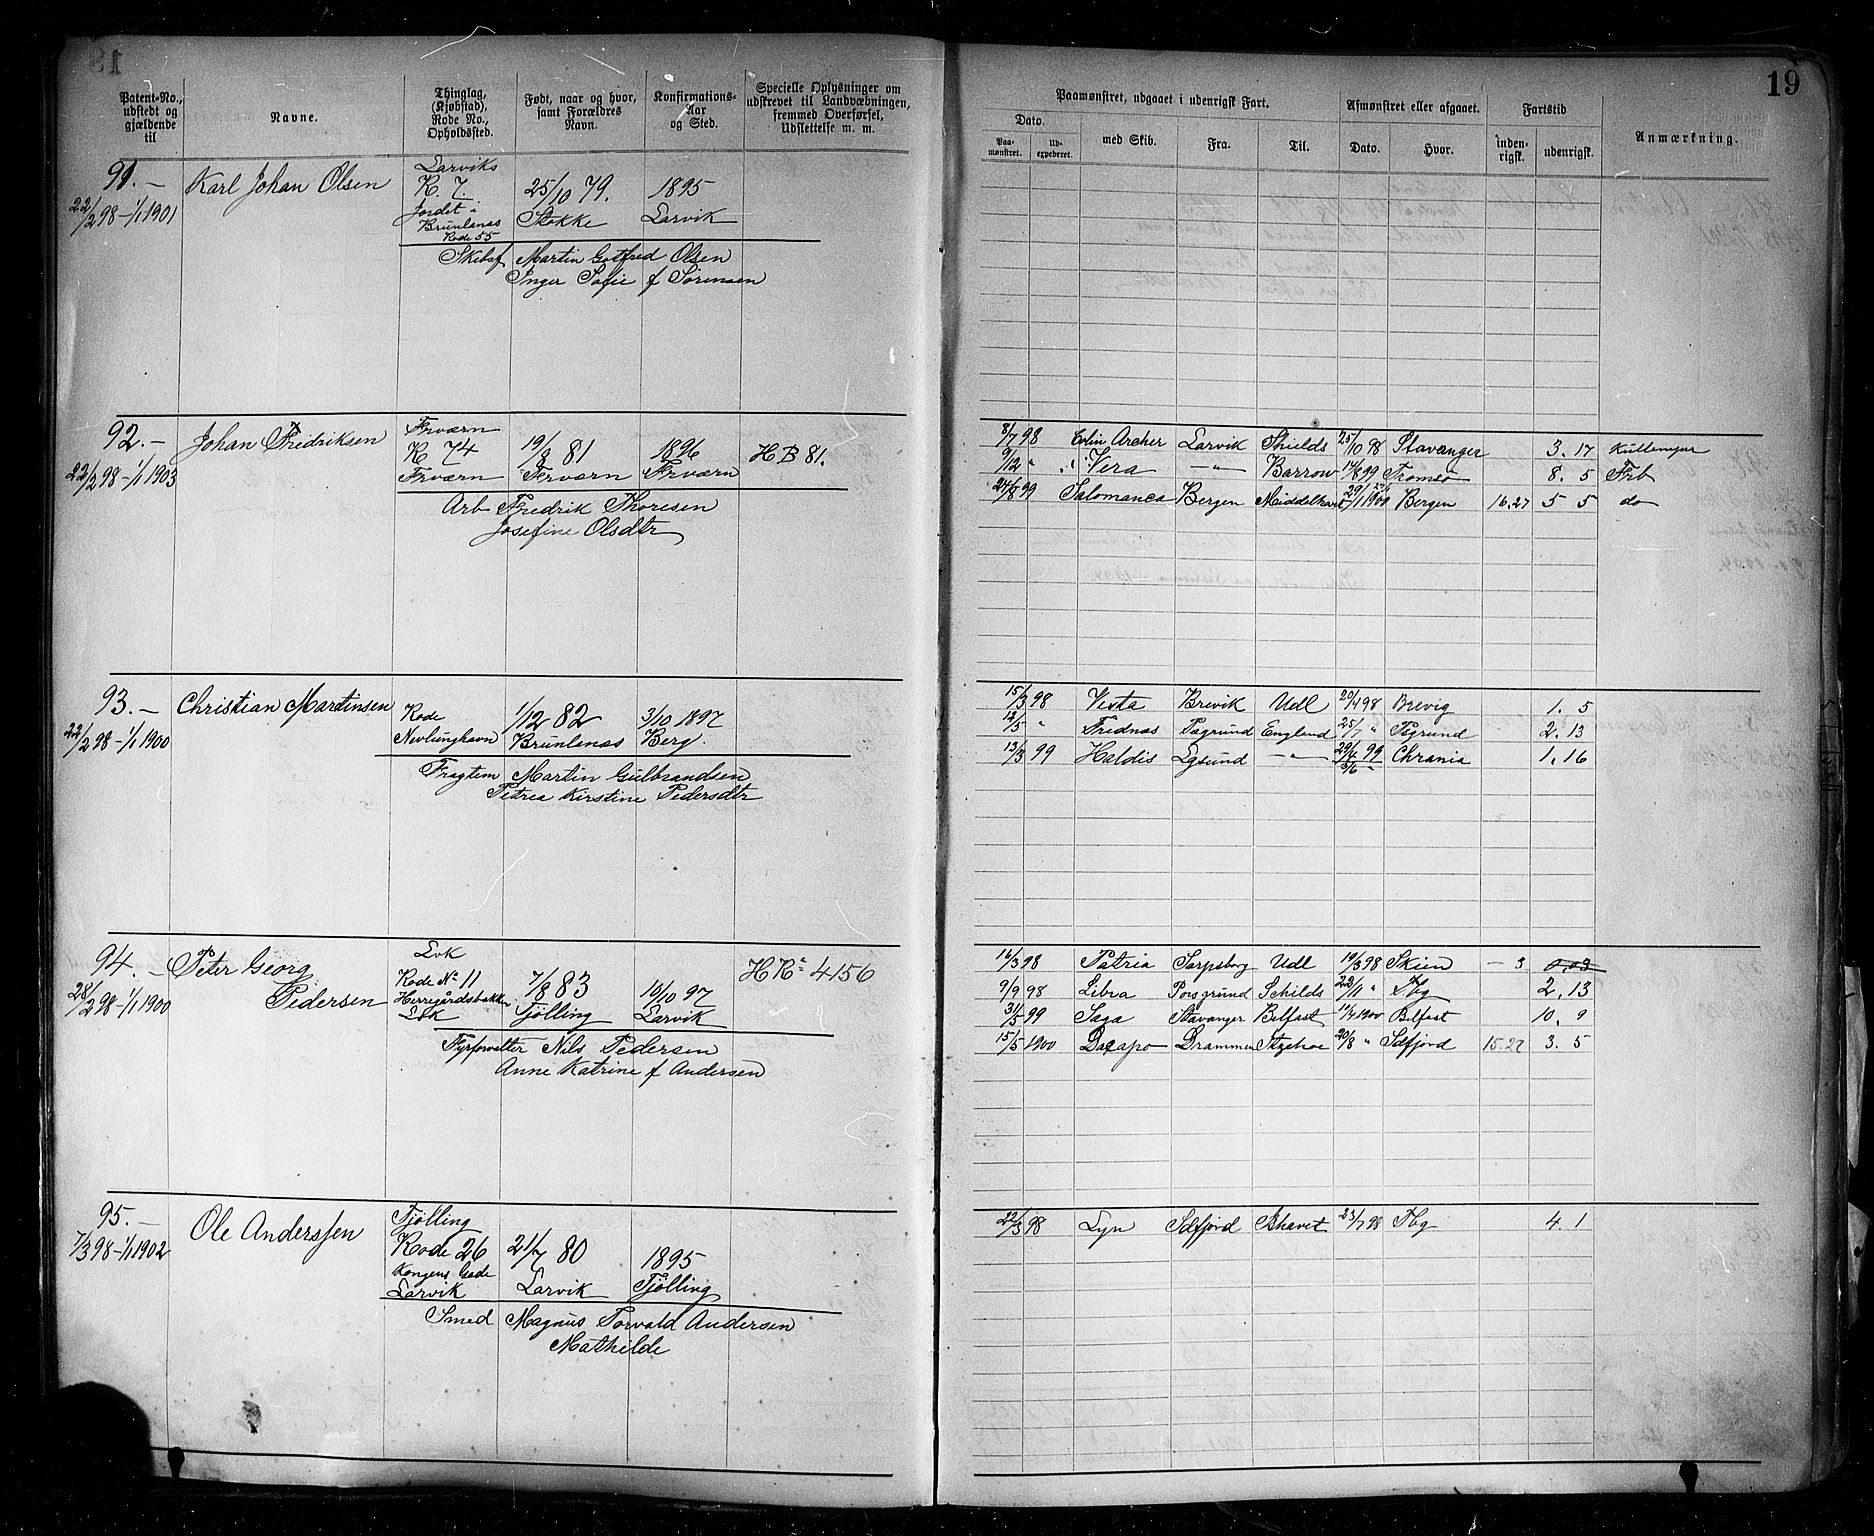 19
Patent-No., udstedt og gjældende til
Navne.
Thinglag, (Kjøbstad), Rode No., Opholdssted.
Født, naar og hvor, samt Forældres Navn.
Konfirmations-Aar og Sted.
Specielle Oplysninger om udskrevet til Landvæbningen, fremmed Overførsel, Udslettelse m. m.
Paamønstret, udgaaet i udenrigsk Fart.
Afmønstret eller afgaaet.
Fartstid
Anmærkning.
Dato.
Paa-mønstret.
Ud-expederet.
med Skib.
Fra.
Til.
Dato.
Hvor.
inden-rigsk.
udenrigsk.
91.— Karl Johan Olsen
22/2 98 – 1/1 1901
Larviks
K. 7. 25/10 79. 1895
Jordet i Stokke Larvik
Brunlanæs
Rode 55
Skibsf Martin Gotfred Olsen
Inger Sofie f Sørensen
92.— Johan Fredriksen
22/2 98 – 1/1 1903
Frværn
K 74 19/8 81 1896 H B 81.
Frværn Frværn Frværn
Arb Fredrik Thoresen
Josefine Olsdtr
8/7 98 Colin Archer Larvik Shields 25/10 98 Stavanger 3. 17
9/12 " Vera —"— Barrow 14/8 99 Tromsø 8. 5 Frb
24/8 99 Salomanca Bergen Middelhavet 29/1 1900 Bergen 16.27 5 5 do
93.— Christian Martinsen
22/2 98 – 1/1 1900
Rode 1/12 82 3/10 1897
Nevlunghavn Brunlanæs Berg.
Fragtem Martin Gulbrandsen
Petrea Kirstine Pedersdtr
15/3 98 Vesta Brevik Udl 20/4 98 Brevig 1. 5
12/5 " Frednæs Psgrund England 25/7 " Psgrund 2. 13
13/3 99 Haldis Egsund —"— 29/4 99 Chrania 1. 16
3/6 "
94.— Peter Georg Pedersen
28/2 98 – 1/1 1900
Lvk
Rode № 11 7/8 83 10/10 97 H R 4156
Herregårdsbakken
Lvk Tjølling Larvik
Fyrforvalter Nils Pedersen
Anne Katrine f Andersen
16/3 98 Patria Sarpsborg Udl 19/3 98 Skien – 3 0,03
9/9 98 Libra Porsgrund Schilds 22/11 " Tbg 2. 13
31/5 99 Saga Stavanger Belfast 14/4 1900 Belfast 10. 9
15/5 1900 Dacapo Drammen Itzehoe 20/8 " Sdfjord 15.27 3. 5
95.— Ole Anderssen
7/3 98 – 1/1 1902
Tjølling
Rode 26 21/7 80 1895
Kongens Gade
Larvik Larvik Tjølling
Smed Magnus Torvald Andersen
Mathilde
22/3 98 Lyn Sdfjord Ishavet 23/7 98 Tbg 4. 1